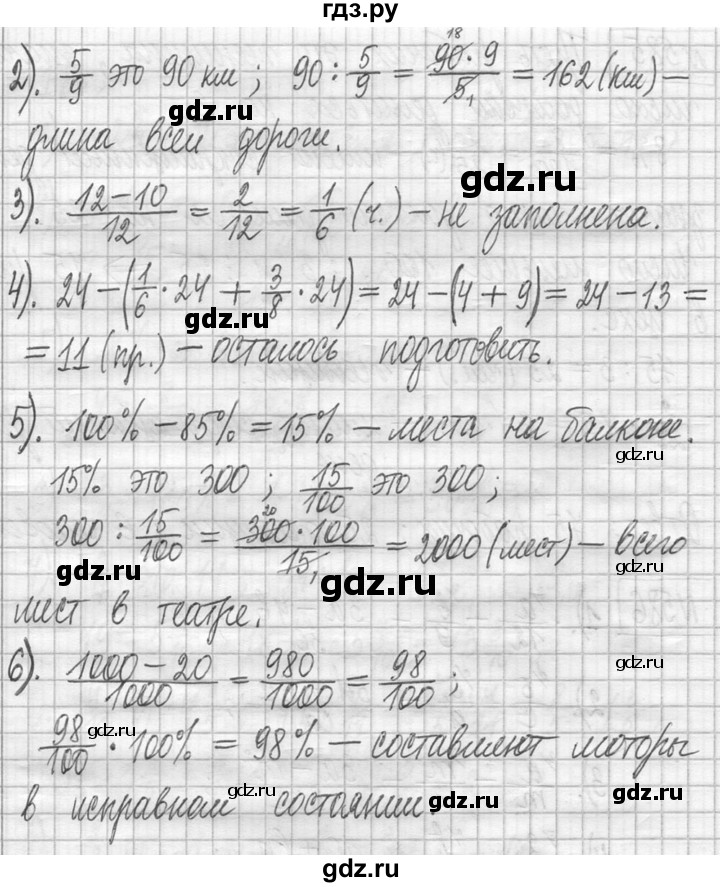 гдз.ру
2). 5/9 это 90 км; 90 : 5/9 = 90·9/5 = 162 (км) –
18
1
длина всей дороги.
gdz.ru
3). 12–10/12 = 2/12 = 1/6 (ч.) – не заполнена.
gdz.ru
4). 24 – (1/6 · 24 + 3/8 · 24) = 24 – (4 + 9) = 24 – 13 =
gdz.ru
= 11 (пр.) – осталось подготовить.
5). 100% – 85% = 15% – места на балконе.
gdz.ru
15% это 300; 15/100 это 300;
300 : 15/100 = 300·100/15 = 2000 (мест) – всего
20
1
gdz.ru
gdz.ru
gdz.ru
мест в театре.
6). 1000–20/1000 = 980/1000 = 98/100;
gdz.ru
98/100 · 100% = 98% – составляют моторы
gdz.ru
gdz.ru
в исправном состоянии.
gdz.ru
gdz.ru
gdz.ru
gdz.ru